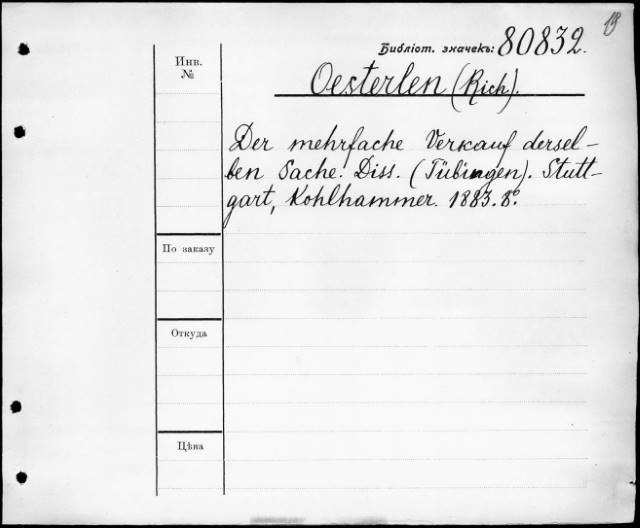 19
Библіот. значекъ: 80832.
Инв.
№
Oesterlen (Rich).
Der mehrfache Verkauf dersel-
ben Sache. Diss. (Tübingen). Stutt-
gart, Kohlhammer. 1883. 8º.
По заказу
Откуда
Цѣна